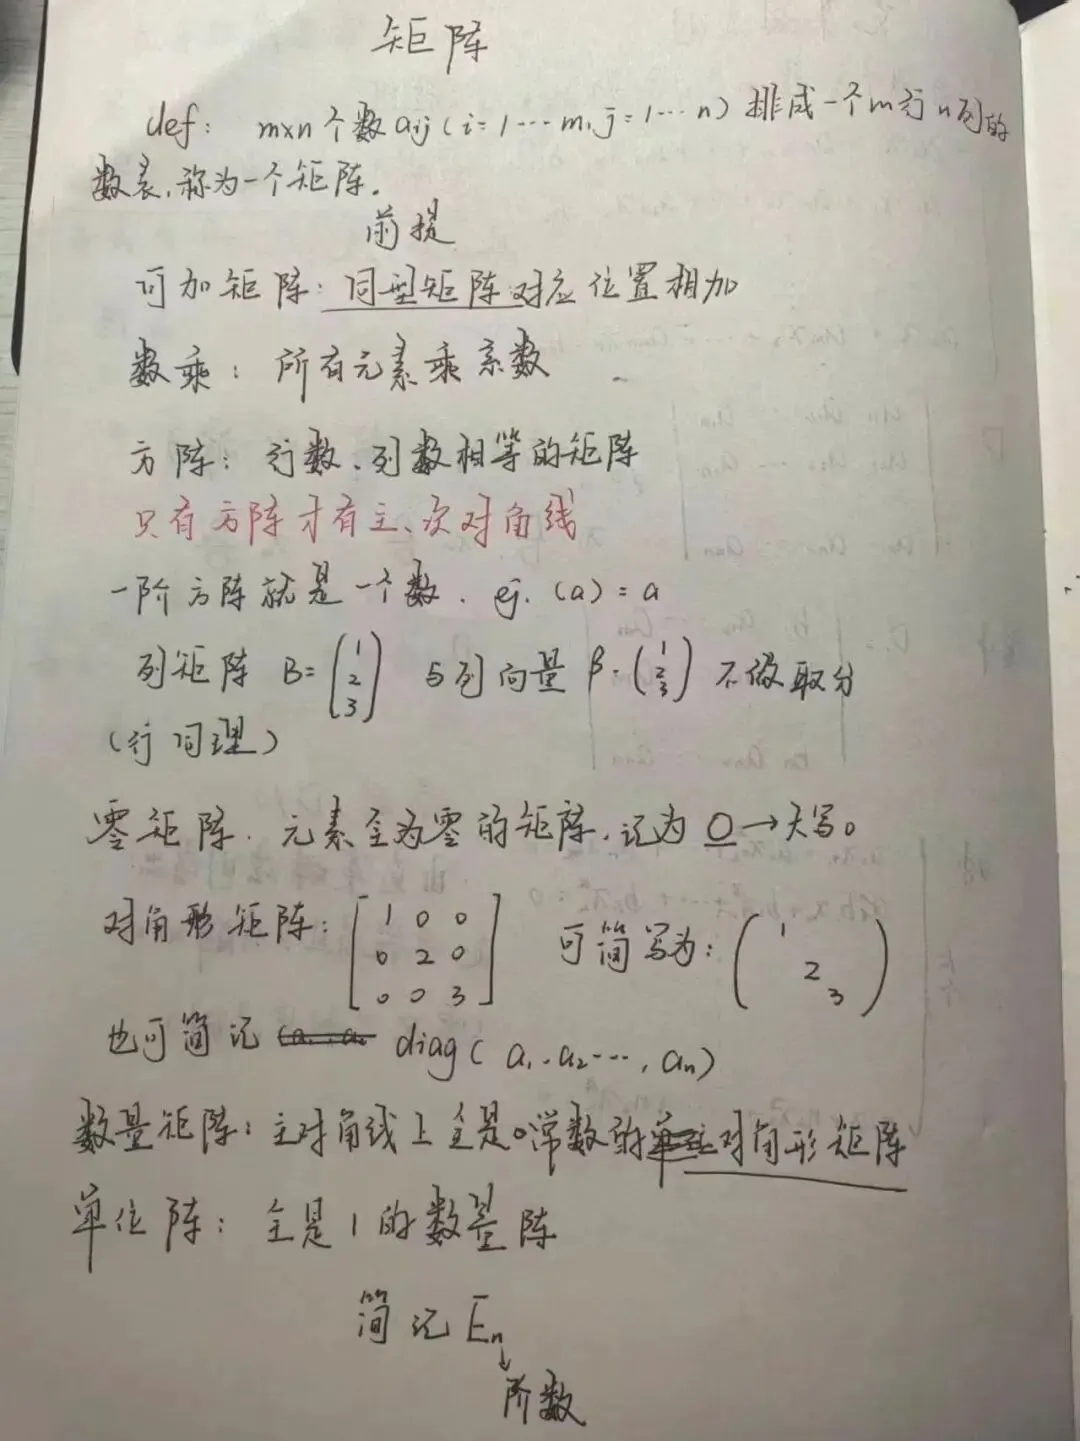 矩阵
def: m×n个数aij(i=1…m, j=1…n)排成一个m行n列的
数表,称为一个矩阵.
前提
可加矩阵:同型矩阵对应位置相加
数乘:所有元素乘系数
方阵:行数、列数相等的矩阵
只有方阵才有主、次对角线
一阶方阵就是一个数. ej. (a)=a
列矩阵 B=(1 2 3) 与列向量 β=(1 2 3) 不做取分
(行同理)
零矩阵.元素全为零的矩阵,记为O→大写o
对角形矩阵:[1 0 0
0 2 0
0 0 3] 可简写为:(1 2 3)
也可简记 diag(a1,a2…,an)
数量矩阵:主对角线上全是常数的对角形矩阵
单位阵:全是1的数量阵
简记En
↓
阶数